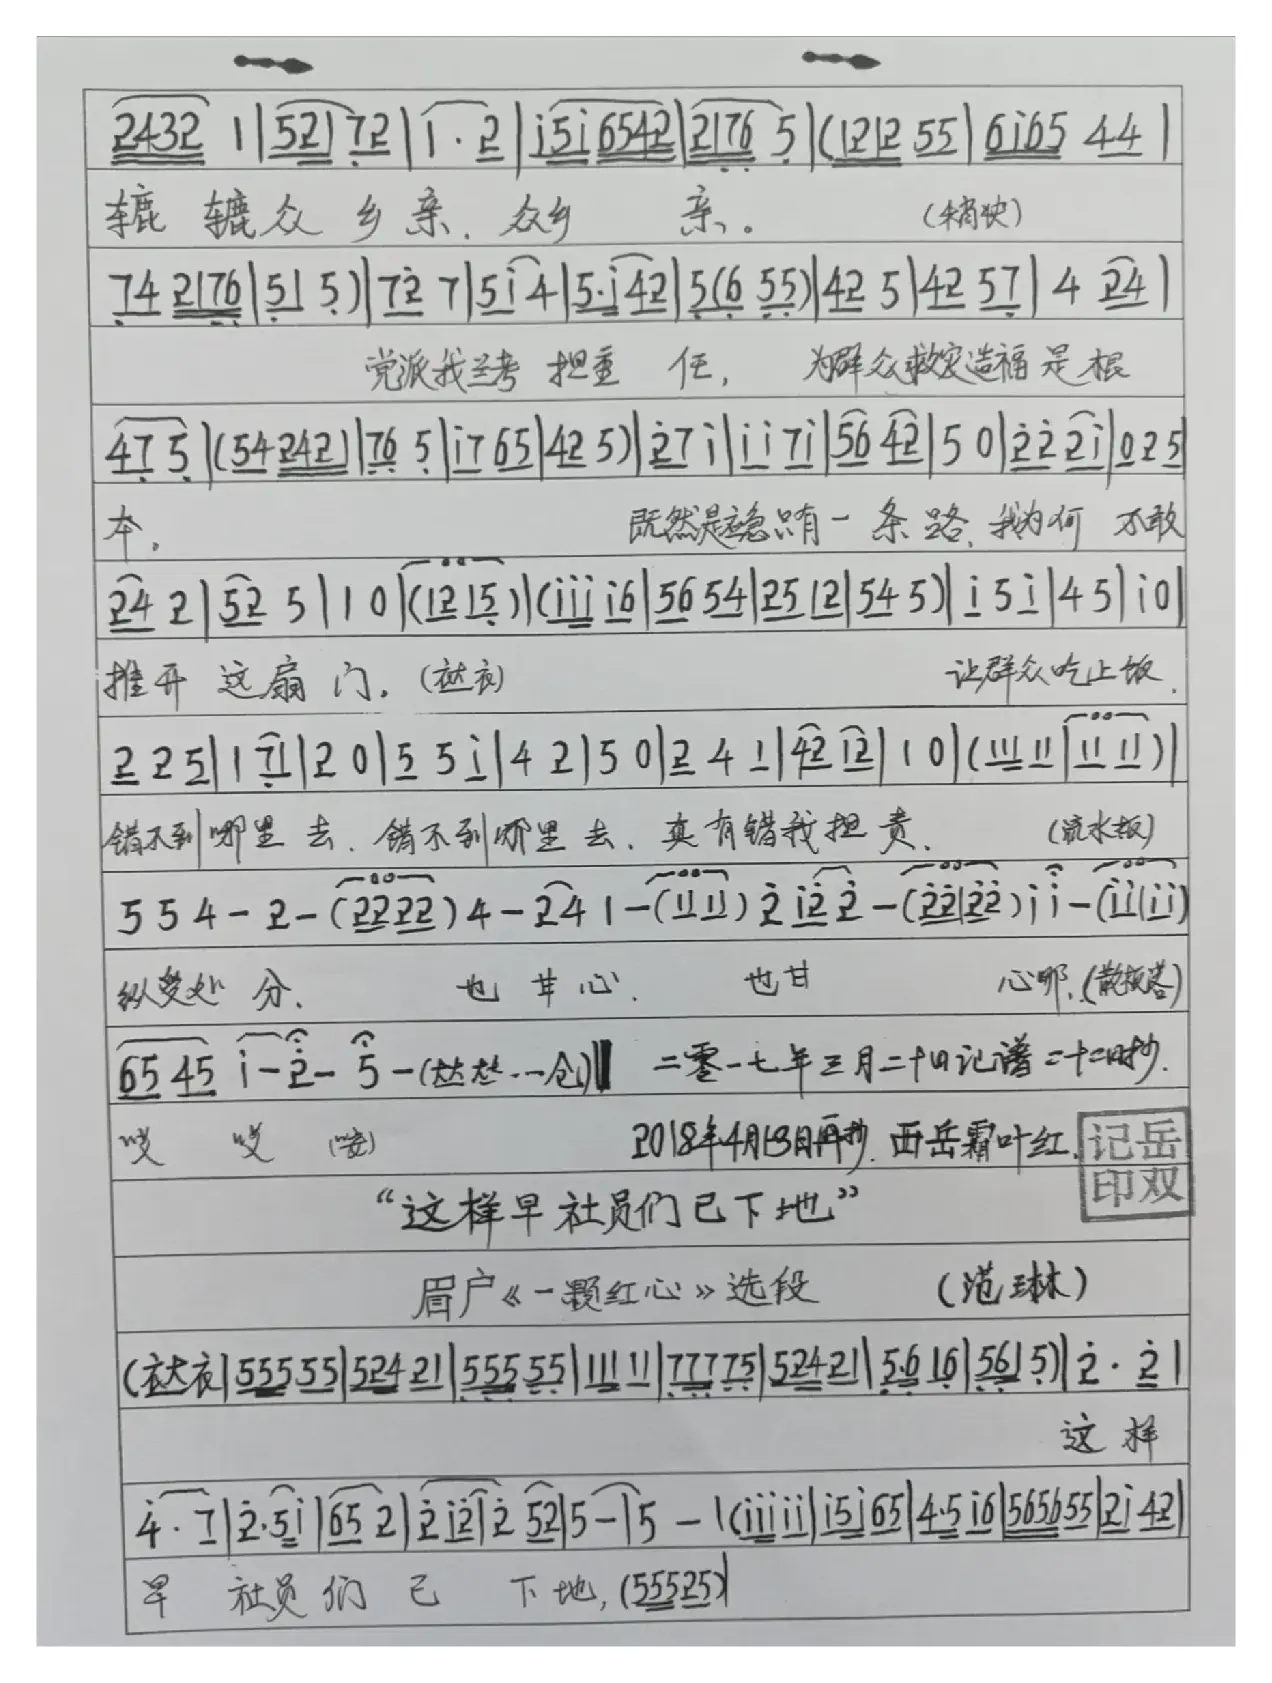 2432 1|521 72|i·2|i5i 6542|2176 5|(1212 55|6i65 44|
辘 辘众 乡亲、众乡 亲、。 (稍快)
74 2176|51 5)|72 7|5i4|5·i42|5(6 55)|42 5|42 57|4 24|
党派我兰考 担重 任, 为群众救灾造福是根
47 5|(54 2421|76 5|i7 65|42 5)|27i|ii7i|56 42|50|22 2i|025
本。 既然是 只有一 条 路、我为何 不敢
24 2|52 5|10|(12 15)|(iii i6|56 54|25 12|54 5)|i5i|45|i0|
推开 这扇 门。(衣) 让群众吃上饭、
225|1 71|20|55i|42|50|241|42 12|10|(111 11|11 11)|
错不到|哪里 去、错不到|哪里 去、真有错我担 责、 (流水板)
554-2-(22 22)4-241-(11 11)2 i2 2-(22|22)ii-(ii|ii)
纵受处 分、 也 甘 心、 也甘 心哪、(散板)
65 45 i-2-5-( 一仓)‖ 二零一七年三月二十日记谱二十二日抄.
哎 哎 (安) 2018年4月13日再抄.西岳霜叶红.
记岳
印双
“这样早社员们已下地”
眉户《一颗红心》选段 (范琳)
(衣大衣|555 55|524 21|555 55|111 11|7777 5|524 21|5·6 16|561 5)|2·2|
这 样
4·7|2·5i|65 2|2 i2i|2 52|5-|5-|(iii ii|i5i 65|4·5 i6|5656 55|2i 42|
早 社员们 已 下地,(55525)|